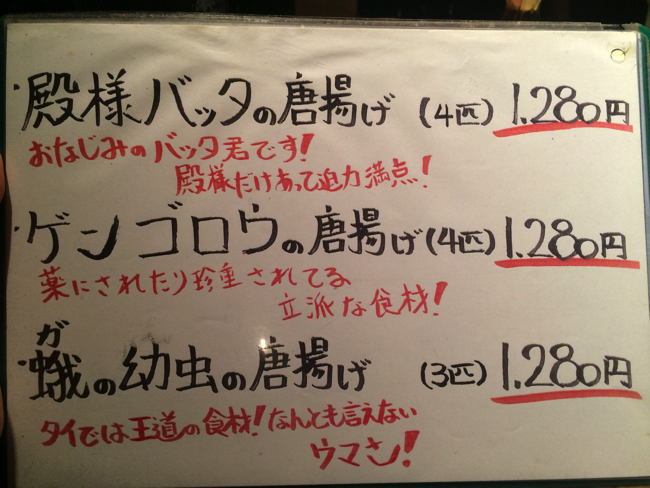 ・殿様バッタの唐揚げ (4匹) 1.280円
おなじみのバッタ君です!
殿様だけあって迫力満点!
・ゲンゴロウの唐揚げ(4匹) 1.280円
薬にされたり珍重されてる
立派な食材!
ガ
・蛾の幼虫の唐揚げ (3匹) 1.280円
タイでは王道の食材!なんとも言えない
ウマさ!